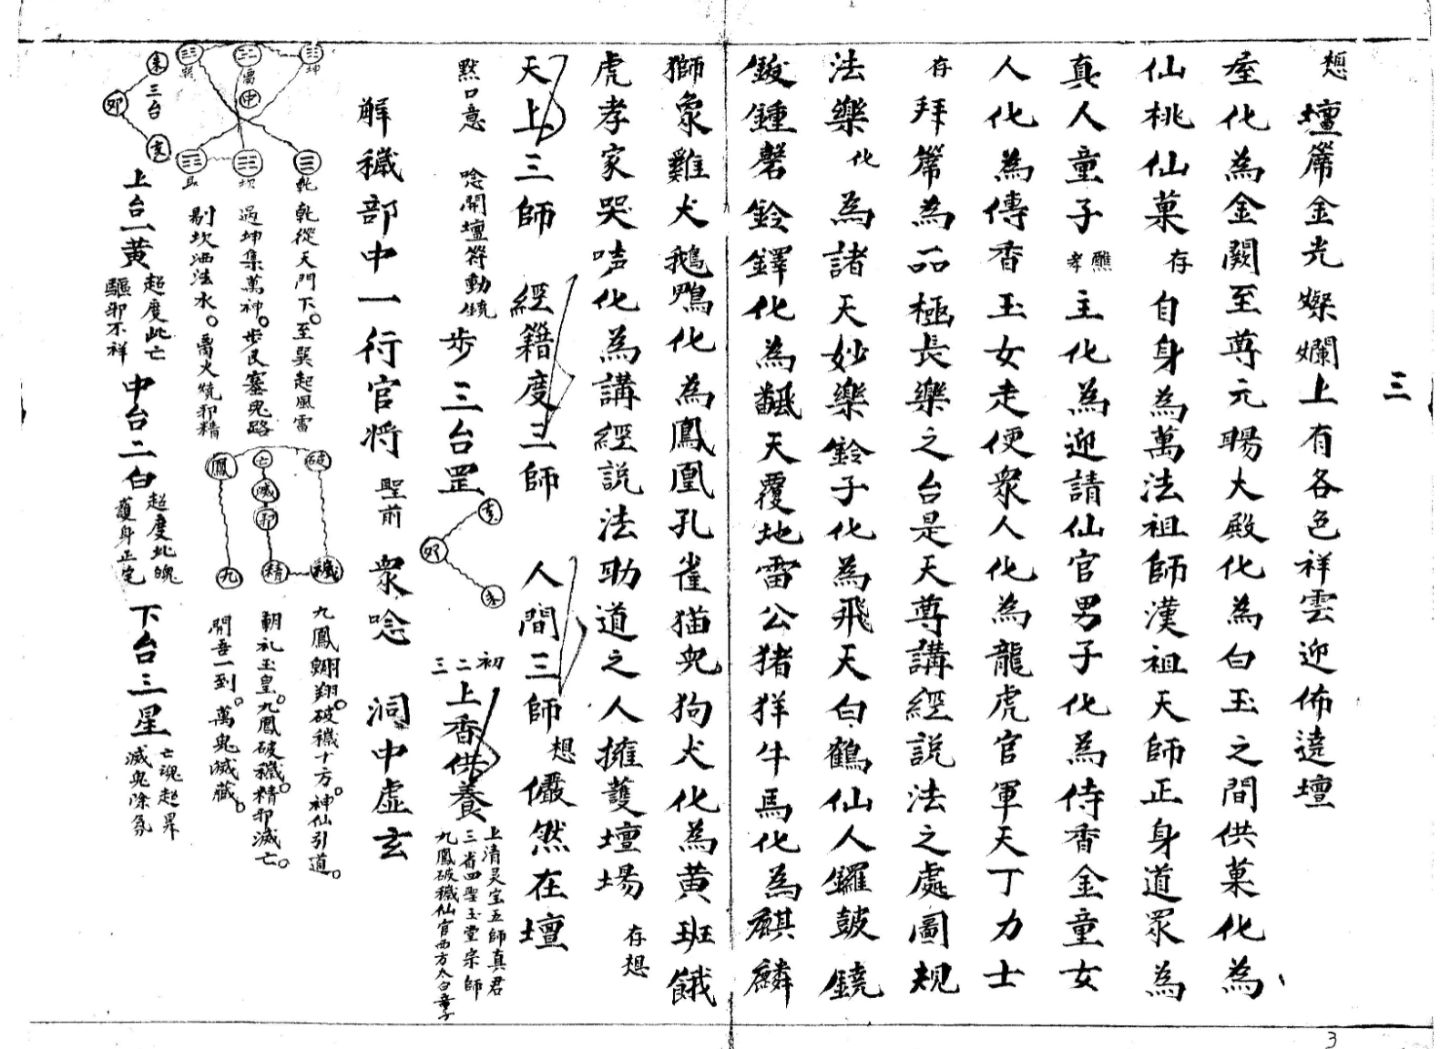 三
想 壇篆金光燦爛上有各色祥雲迎佈遶壇
座化為金闕至尊元暘大殿化為白玉之間供菓化為
仙桃仙菓 存 自身為萬法祖師漢祖天師正身道眾為
真人童子 醮孝 主化為迎請仙官男子化為侍香金童女
人化為傳香玉女走使眾人化為龍虎官軍天丁力士
存 拜篆為品極長樂之台是天尊講經説法之處圖規
法樂 化 為諸天妙樂鈴子化為飛天白鶴仙人鑼鼓鐃
鈸鍾磬鈴鐸化為 天覆地雷公猪羊牛馬化為麒麟
獅象雞犬鵝鴨化為鳳凰孔雀猫 狗犬化為黄班餓
虎孝家哭声化為講經説法助道之人擁護壇場 存想
天上三師 經籍度三師 人間三師 想 儼然在壇
黙口意 唸開壇符動鐃 步三台罡 初二三 上香供養
亥 卯 未
上清灵宝五師真君
三省四聖玉堂宗師
九鳳破穢仙官西方太白童子
解穢部中一行官将 聖前 衆唸 洞中虚玄
坤 離 巽 中 乾 坎 艮
乾從天門下。至巽起風雷
過坤集萬神。步艮塞鬼路
坎洒法水。 火燒邪精
未 三台 卯 亥
鳳 亡 滅 邪 破 九 精 穢
九鳳翱翔。破穢十方。神仙引道。
朝礼玉皇。九鳳破穢。精邪滅亡。
吾一到。萬鬼滅藏。
上台一黄 超度此亡 驅邪不祥 中台二白 超度北魄 護身正定 下台三星 亡魂超昇 滅鬼除氛
3